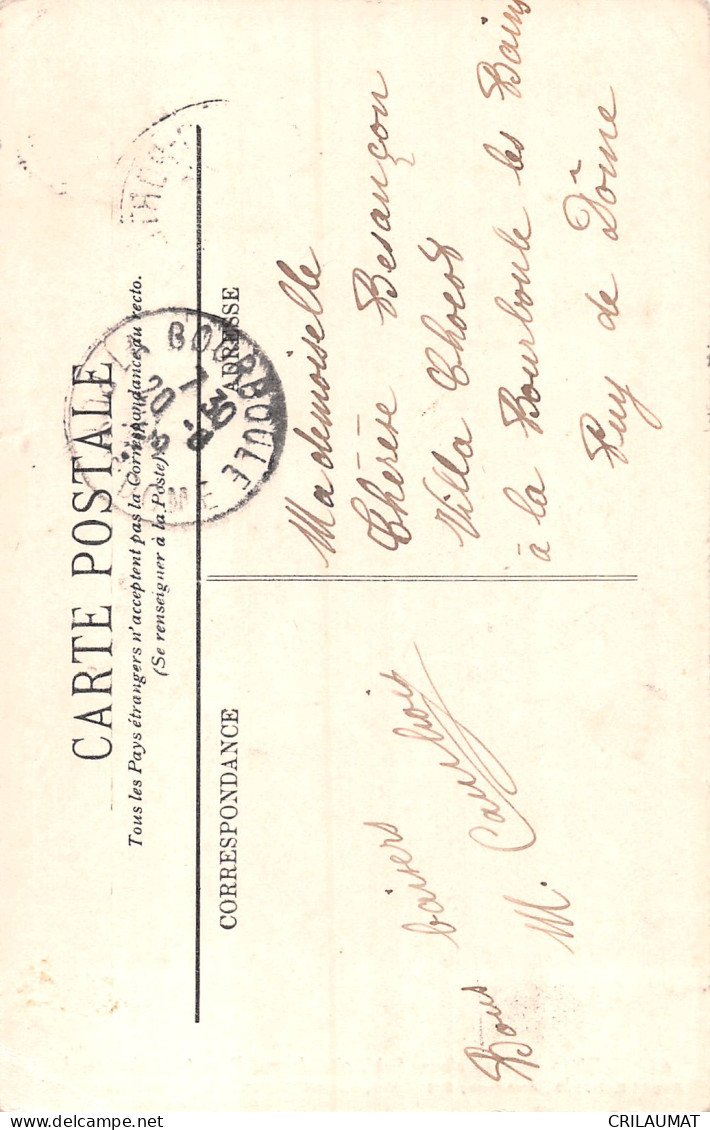 CARTE POSTALE
Tous les Pays étrangers n'acceptent pas la Correspondance au recto.
(Se renseigner à la Poste)
CORRESPONDANCE
ADRESSE
Bons baisers
M.
Mademoiselle
Thérèse Besançon
Villa
à la Bourboule les Bains
Puy de Dôme
BOURBOULE
20
CRILAUMAT